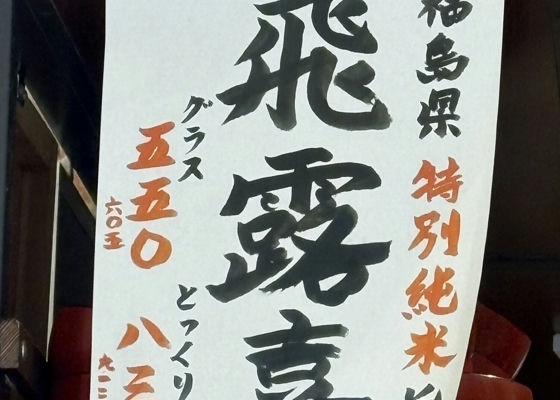 福島県 特別純米
飛露喜
グラス
五五〇
六〇五
とっくり
八三
九一三